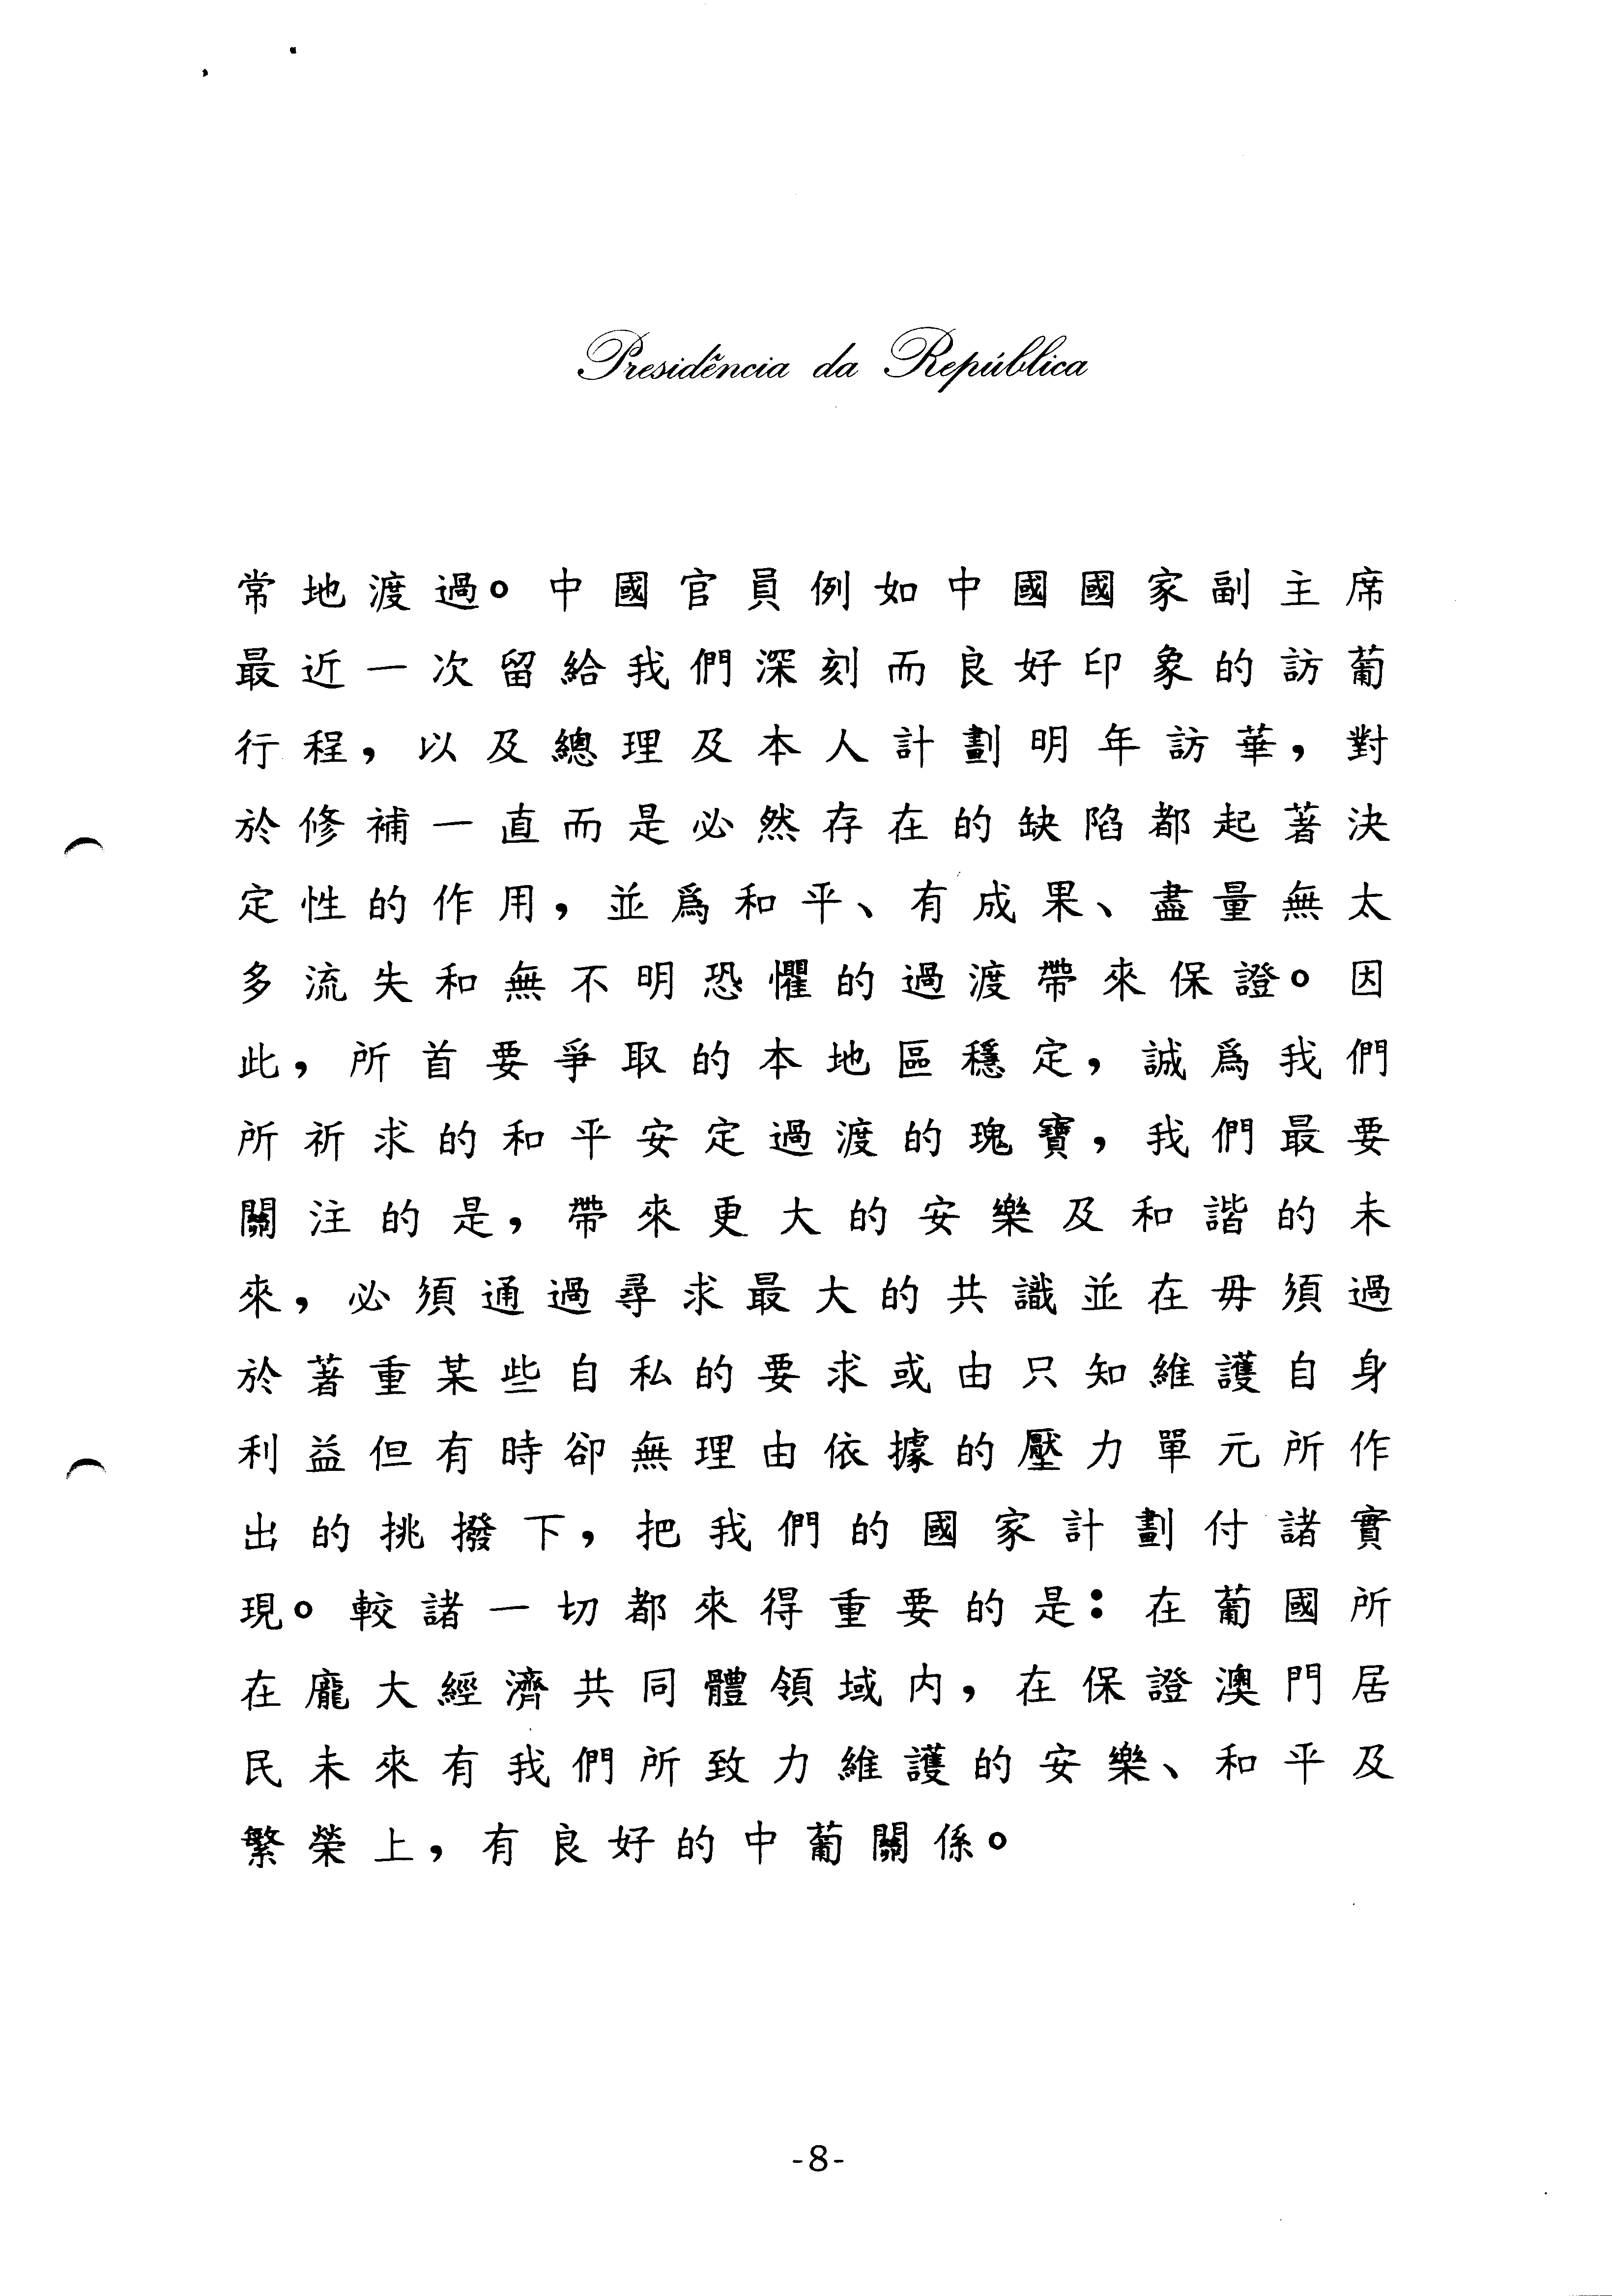 Presidência da República
常地渡過。中國官員例如中國國家副主席
最近一次留給我們深刻而良好印象的訪葡
行程，以及總理及本人計劃明年訪華，對
於修補一直而是必然存在的缺陷都起著決
定性的作用，並爲和平、有成果、盡量無太
多流失和無不明恐懼的過渡帶來保證。因
此，所首要爭取的本地區穩定，誠爲我們
所祈求的和平安定過渡的瑰寶，我們最要
關注的是，帶來更大的安樂及和諧的未
來，必須通過尋求最大的共識並在毋須過
於著重某些自私的要求或由只知維護自身
利益但有時卻無理由依據的壓力單元所作
出的挑撥下，把我們的國家計劃付諸實
現。較諸一切都來得重要的是：在葡國所
在龐大經濟共同體領域内，在保證澳門居
民未來有我們所致力維護的安樂、和平及
繁榮上，有良好的中葡關係。
-8-